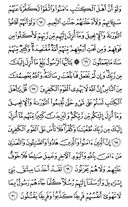 وَلَوْ أَنَّ أَهْلَ ٱلْكِتَٰبِ ءَامَنُوا۟ وَٱتَّقَوْا۟ لَكَفَّرْنَا عَنْهُمْ
سَيِّـَٔاتِهِمْ وَلَأَدْخَلْنَٰهُمْ جَنَّٰتِ ٱلنَّعِيمِ ٦٥ وَلَوْ أَنَّهُمْ أَقَامُوا۟
ٱلتَّوْرَىٰةَ وَٱلْإِنجِيلَ وَمَآ أُنزِلَ إِلَيْهِم مِّن رَّبِّهِمْ لَأَكَلُوا۟ مِن
فَوْقِهِمْ وَمِن تَحْتِ أَرْجُلِهِم مِّنْهُمْ أُمَّةٌ مُّقْتَصِدَةٌ وَكَثِيرٌ مِّنْهُمْ
سَآءَ مَا يَعْمَلُونَ ٦٦ يَٰٓأَيُّهَا ٱلرَّسُولُ بَلِّغْ مَآ أُنزِلَ إِلَيْكَ
مِن رَّبِّكَ وَإِن لَّمْ تَفْعَلْ فَمَا بَلَّغْتَ رِسَالَتَهُۥ وَٱللَّهُ يَعْصِمُكَ
مِنَ ٱلنَّاسِ إِنَّ ٱللَّهَ لَا يَهْدِى ٱلْقَوْمَ ٱلْكَٰفِرِينَ ٦٧ قُلْ يَٰٓأَهْلَ
ٱلْكِتَٰبِ لَسْتُمْ عَلَىٰ شَىْءٍ حَتَّىٰ تُقِيمُوا۟ ٱلتَّوْرَىٰةَ وَٱلْإِنجِيلَ
وَمَآ أُنزِلَ إِلَيْكُم مِّن رَّبِّكُمْ وَلَيَزِيدَنَّ كَثِيرًا مِّنْهُم مَّآ أُنزِلَ
إِلَيْكَ مِن رَّبِّكَ طُغْيَٰنًا وَكُفْرًا فَلَا تَأْسَ عَلَى ٱلْقَوْمِ ٱلْكَٰفِرِينَ
٦٨ إِنَّ ٱلَّذِينَ ءَامَنُوا۟ وَٱلَّذِينَ هَادُوا۟ وَٱلصَّٰبِـُٔونَ وَٱلنَّصَٰرَىٰ
مَنْ ءَامَنَ بِٱللَّهِ وَٱلْيَوْمِ ٱلْـَٔاخِرِ وَعَمِلَ صَٰلِحًا فَلَا خَوْفٌ
عَلَيْهِمْ وَلَا هُمْ يَحْزَنُونَ ٦٩ لَقَدْ أَخَذْنَا مِيثَٰقَ بَنِىٓ
إِسْرَٰٓءِيلَ وَأَرْسَلْنَآ إِلَيْهِمْ رُسُلًا كُلَّمَا جَآءَهُمْ رَسُولٌۢ بِمَا
لَا تَهْوَىٰٓ أَنفُسُهُمْ فَرِيقًا كَذَّبُوا۟ وَفَرِيقًا يَقْتُلُونَ ٧٠